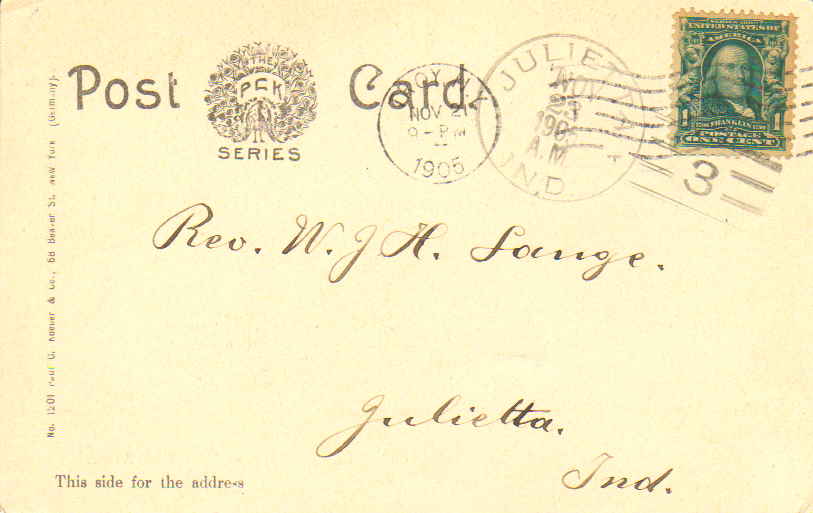 Post Card.
THE
P.C.K
SERIES
TROY, N.Y.
NOV 21
9 - PM
1905
JULIETTA
NOV
23
190
A.M.
IND.
3
SERIES 1902
UNITED STATES OF
AMERICA
1 FRANKLIN 1
POSTAGE
ONE CENT
Rev. W. J. H. Lange.
Julietta.
Ind.
This side for the address
No. 1201 Paul C. Koeber & Co., 85 Beaver St. New York (Germany).